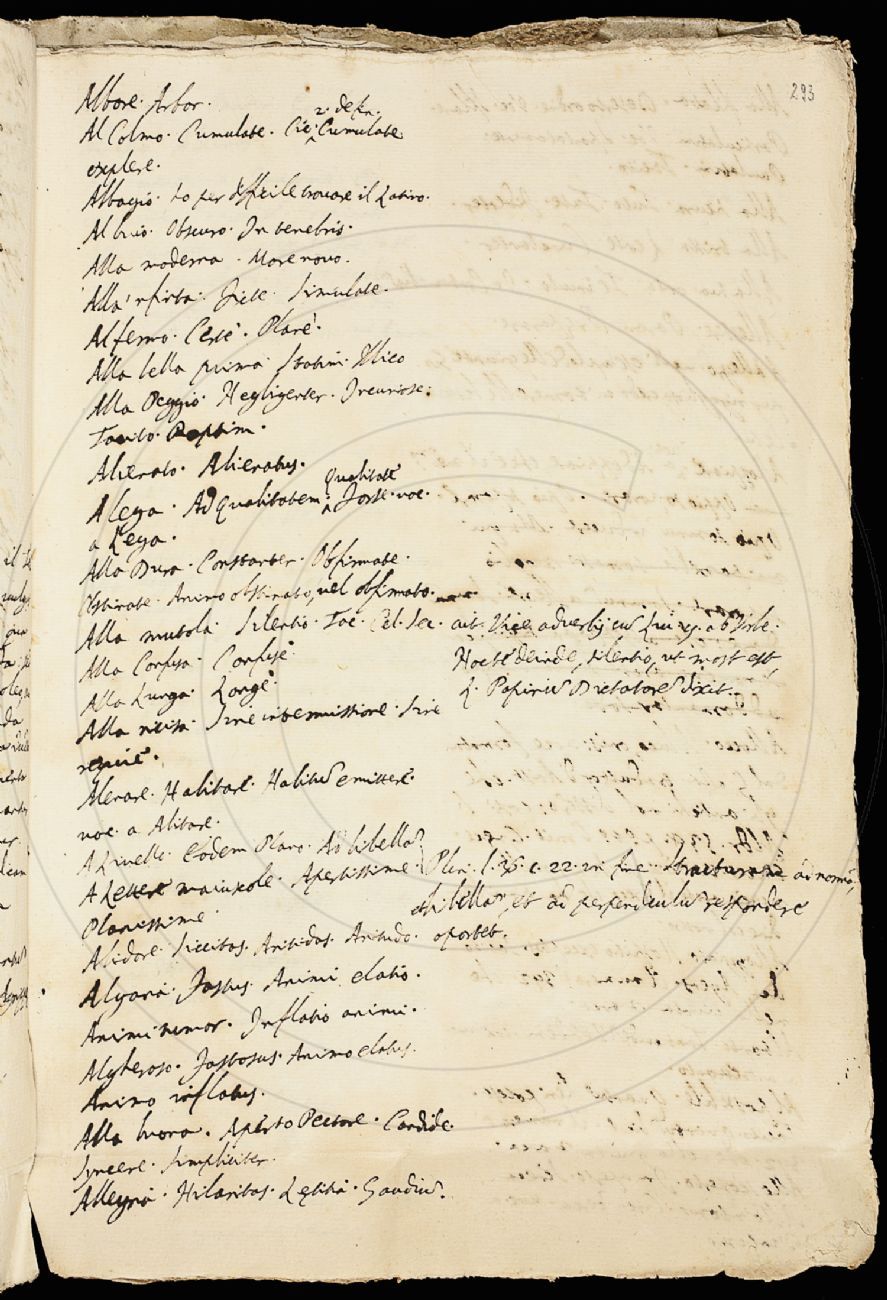 293
Albore. Arbor.
2. de fin.
Al Colmo. Cumulate. Cic. Cumulate
explere.
Albagio. Lo per difficile trovare il Latino.
Al buio. Obscuro. In tenebris.
Alla moderna. More novo.
Alla 'nfinta. Ficte. Simulate.
Al fermo. Certè. Planè.
Alla bella prima. Statim. Illico
Alla Peggio. Negligenter. Incuriose.
Raptim.
Alienato. Alienatus.
Qualitate
A lega. Ad qualitatem. Fosse. voc.
a Lega.
Alla Dura. Constanter. Obfirmate.
Obstinate. Animo obstinato, vel obfirmato.
Alla mutola. Silentio. Tac.
Hoc deinde silentio, ut mos est,
L. Papiriū Dictatorē dixit.
Alla Confusa. Confusè.
Alla Lunga. Longè.
Alla ricisa. Sine intermissione. Sine
requie.
Alenare. Halitare. Halitū emittere.
voc. a Alitare.
A Livello. Eodem Plano. Ad libellā
Plin. l. 36. c. 22. in fine. structuram ad normā,
et libellā, et ad perpendiculū respondere
oportet.
A Lettere maiuscole. Apertissime.
Planissime.
Alidore. Siccitas. Ariditas. Aritudo.
Algaria. Fastus. Animi elatio.
Animi tumor. Inflatio animi.
Algheroso. Fastosus. Animo elatus.
Animo inflatus.
Alla buona. Aperto Pectore. Candide.
Syncere. Simpliciter.
Allegria. Hilaritas. Lętitia. Gaudiū.